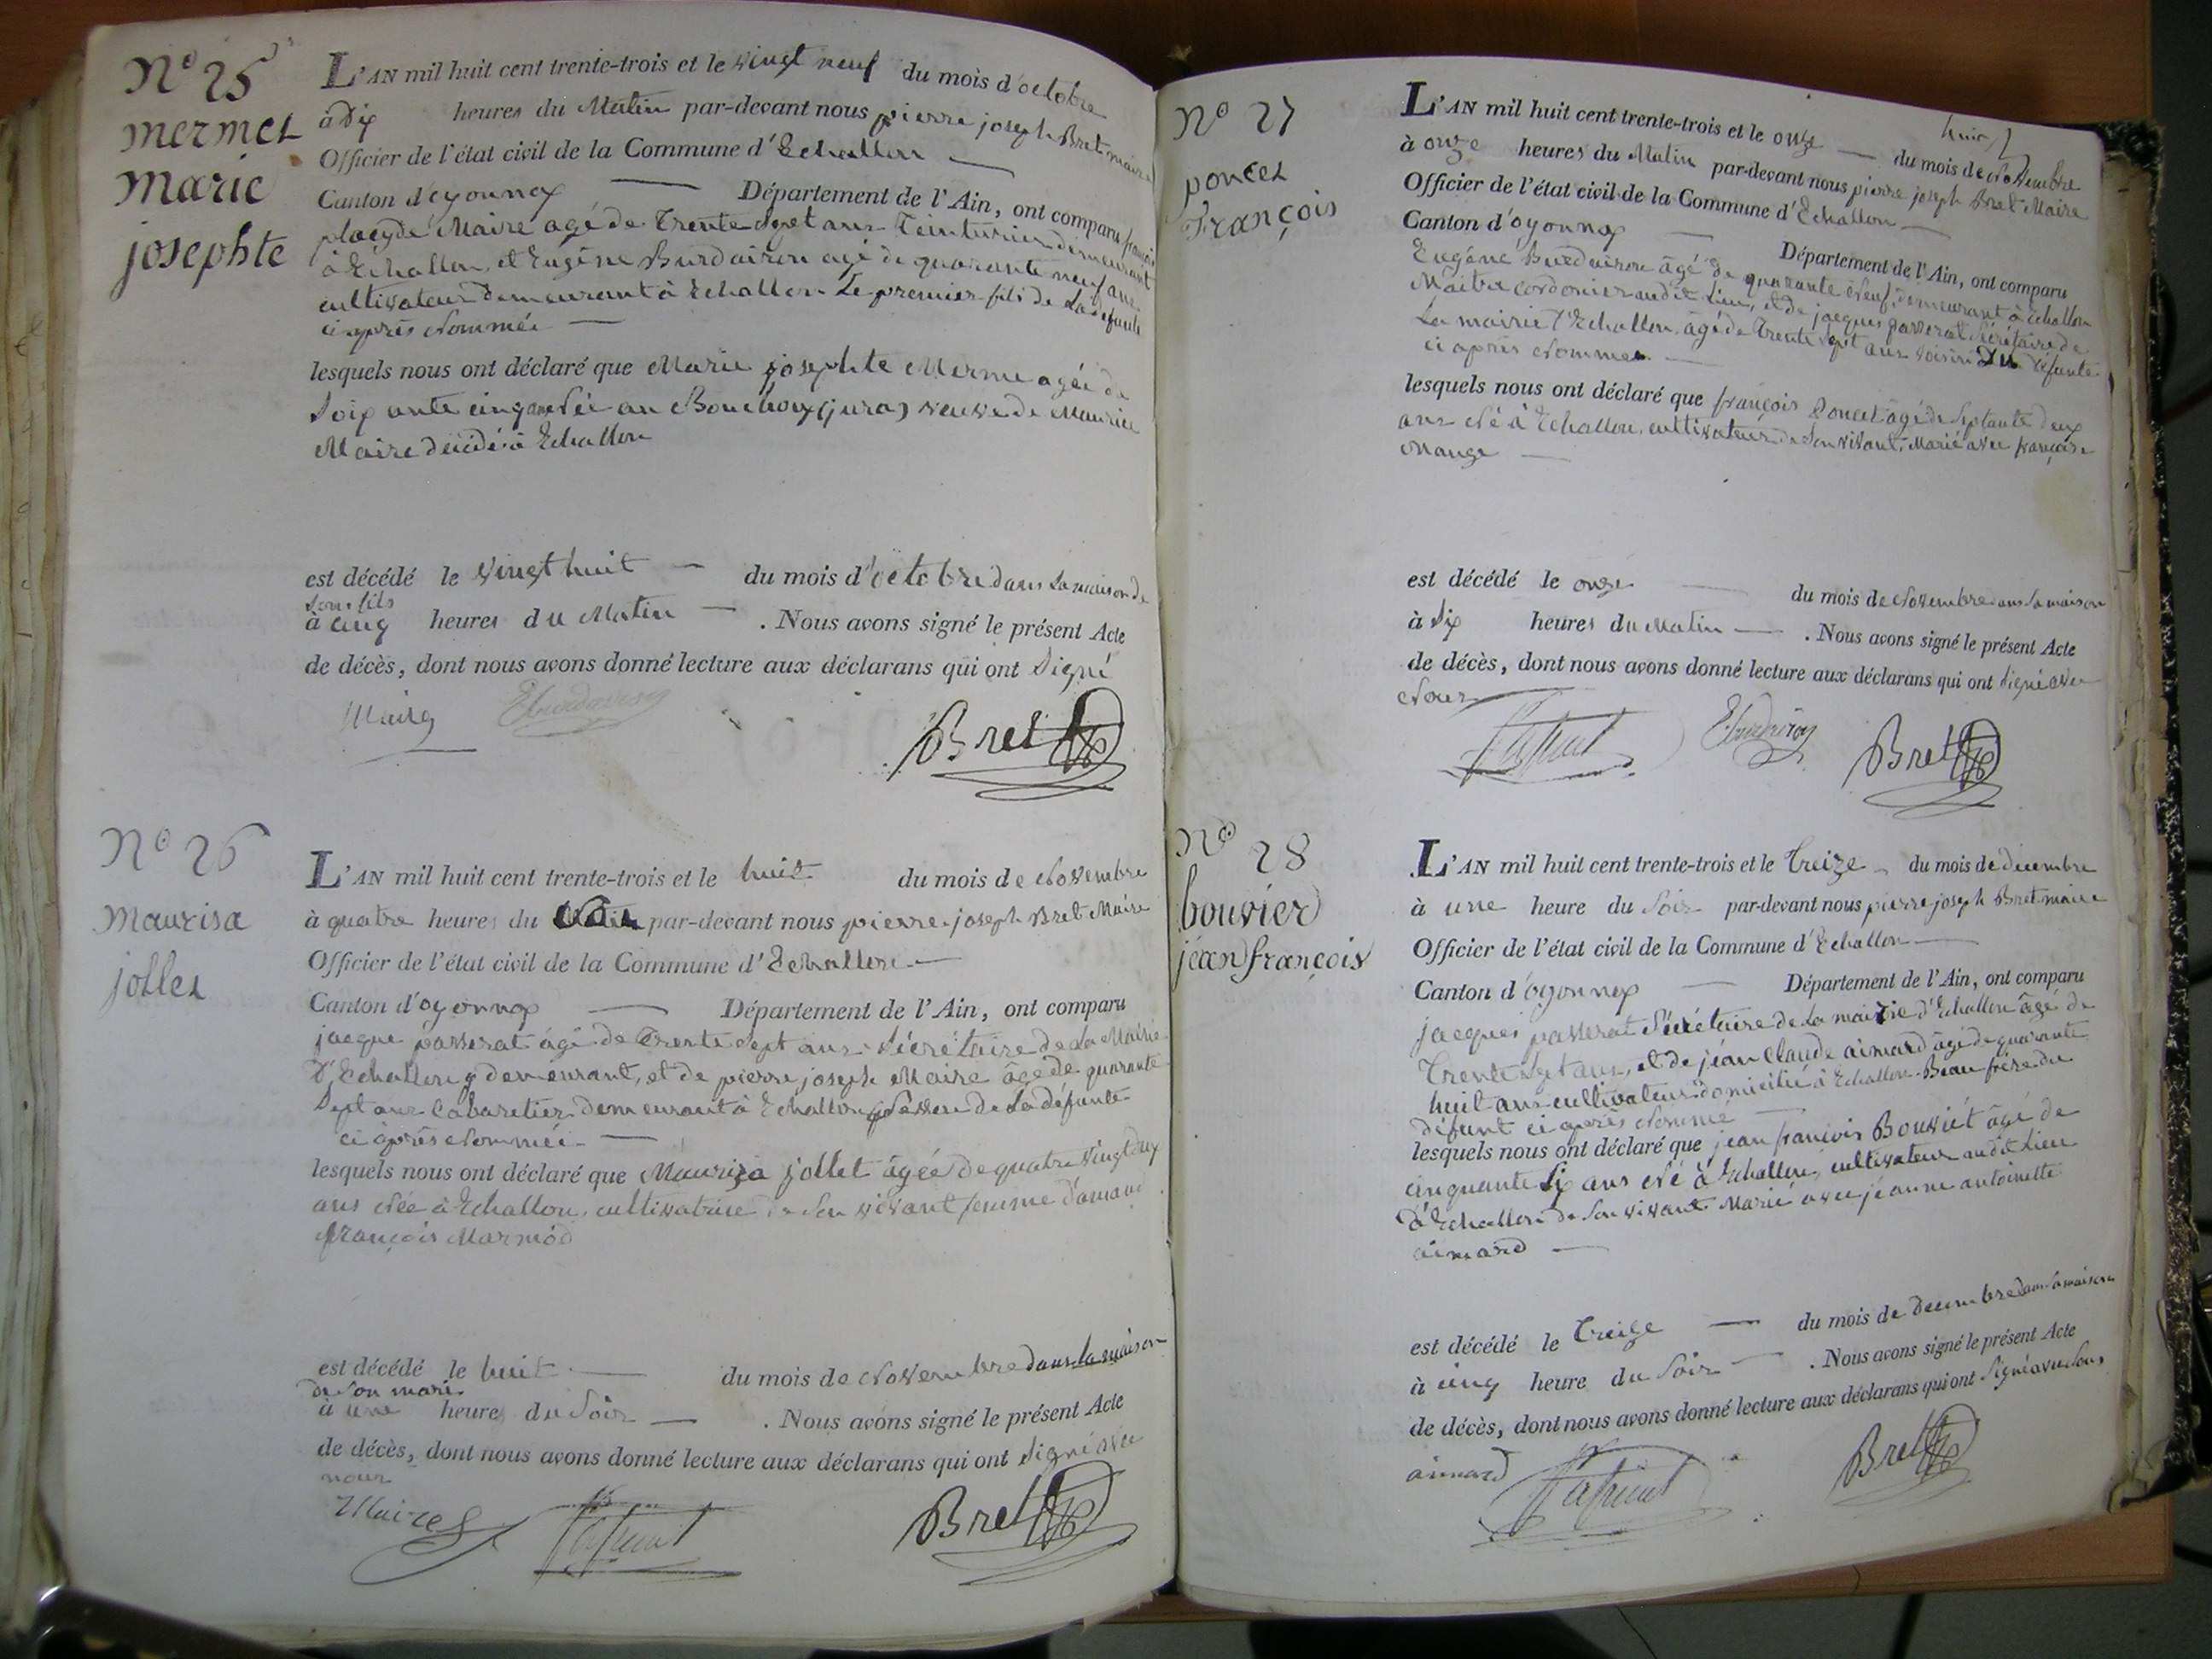 N° 25
mermet
marie
josephte
L'AN mil huit cent trente-trois et le vingt neuf du mois d'octobre
à Dix heures du Matin par-devant nous pierre joseph Bret maire
Officier de l'état civil de la Commune d'Echallon
Canton d'oyonnax Département de l'Ain, ont comparu françois
placyde Maire agé de Trente Sept ans Teinturier demeurant
à Echallon, et Eugène Burdairon agé de quarante neuf ans
cultivateur demeurant à Echallon Le premier fils de La défunte
ci après Nommée
lesquels nous ont déclaré que Marie josephte Merme agée de
Soixante cinq ans Née au Bouchoux (jura) veuve de Maurice
Maire décidé à Echallon
est décédé le vingt huit du mois d'octobre dans la maison de
son fils
à cinq heures du Matin . Nous avons signé le présent Acte
de décès, dont nous avons donné lecture aux déclarans qui ont Signé
Maire Eburdairon Bret
N° 26
Maurisa
jollet
L'AN mil huit cent trente-trois et le huit du mois de Novembre
à quatre heures du par-devant nous pierre joseph Bret Maire
Officier de l'état civil de la Commune d'Echallon
Canton d'oyonnax Département de l'Ain, ont comparu
jacque passerat âgé de Trente Sept ans Sécrétaire de La Mairie
D'Echallon y demeurant, et de pierre joseph Maire âgé de quarante
Sept ans Cabaretier demeurant à Echallon de La défunte
ci après Nommée
lesquels nous ont déclaré que Mauriza jollet âgée de quatre vingt deux
ans Née à Echallon, cultivatrice de Son vivant femme d'amand
françois Marmod
est décédé le huit du mois de Novembre dans la maison
de Son mari
à une heures du Soir . Nous avons signé le présent Acte
de décès, dont nous avons donné lecture aux déclarans qui ont Signé avec
nous
Maire Passerat Bret
N° 27
poncet
François
huit
L'AN mil huit cent trente-trois et le onze du mois de Novembre
à onze heures du Matin par-devant nous pierre joseph Bret Maire
Officier de l'état civil de la Commune d'Echallon
Canton d'oyonnax Département de l'Ain, ont comparu
Eugéne Burdairon âgé de quarante Neuf, demeurant à Echallon
Maitre cordonier audit Lieu, et de jacques passerat Sécrétaire de
La mairie d'Echallon, âgé de Trente Sept ans voisin Du défunte
ci après Nommer
lesquels nous ont déclaré que françois Poncet âgé de Septante deux
ans Né à Echallon, cultivateur de Son vivant, Marié avec françoise
Mange
est décédé le onze du mois de Novembre dans Sa maison
à Dix heures du Matin . Nous avons signé le présent Acte
de décès, dont nous avons donné lecture aux déclarans qui ont Signé avec
Nous
Passerat Eburdairon Bret
N° 28
bouvier
jean françois
L'AN mil huit cent trente-trois et le Treize du mois de decembre
à une heure du Soir par-devant nous pierre joseph Bret maire
Officier de l'état civil de la Commune d'Echallon
Canton d'oyonnax Département de l'Ain, ont comparu
jacques passerat Sécrétaire de La mairie d'Echallon âgé de
Trente Sept ans, et de jéan Claude aimard âgé de quarante
huit ans cultivateur domicilié à Echallon Beau frére du
défunt ci après Nommé
lesquels nous ont déclaré que jean françois Bouviét âgé de
cinquante Six ans Né à Echallon, cultivateur audit Lieu
d'Echallon de Son vivant Marié avec jéanne antoinette
aimard
est décédé le Treize du mois de decembre dans Sa maison
à cinq heure du Soir . Nous avons signé le présent Acte
de décès, dont nous avons donné lecture aux déclarans qui ont Signé avec nous
aimard Passerat Bret